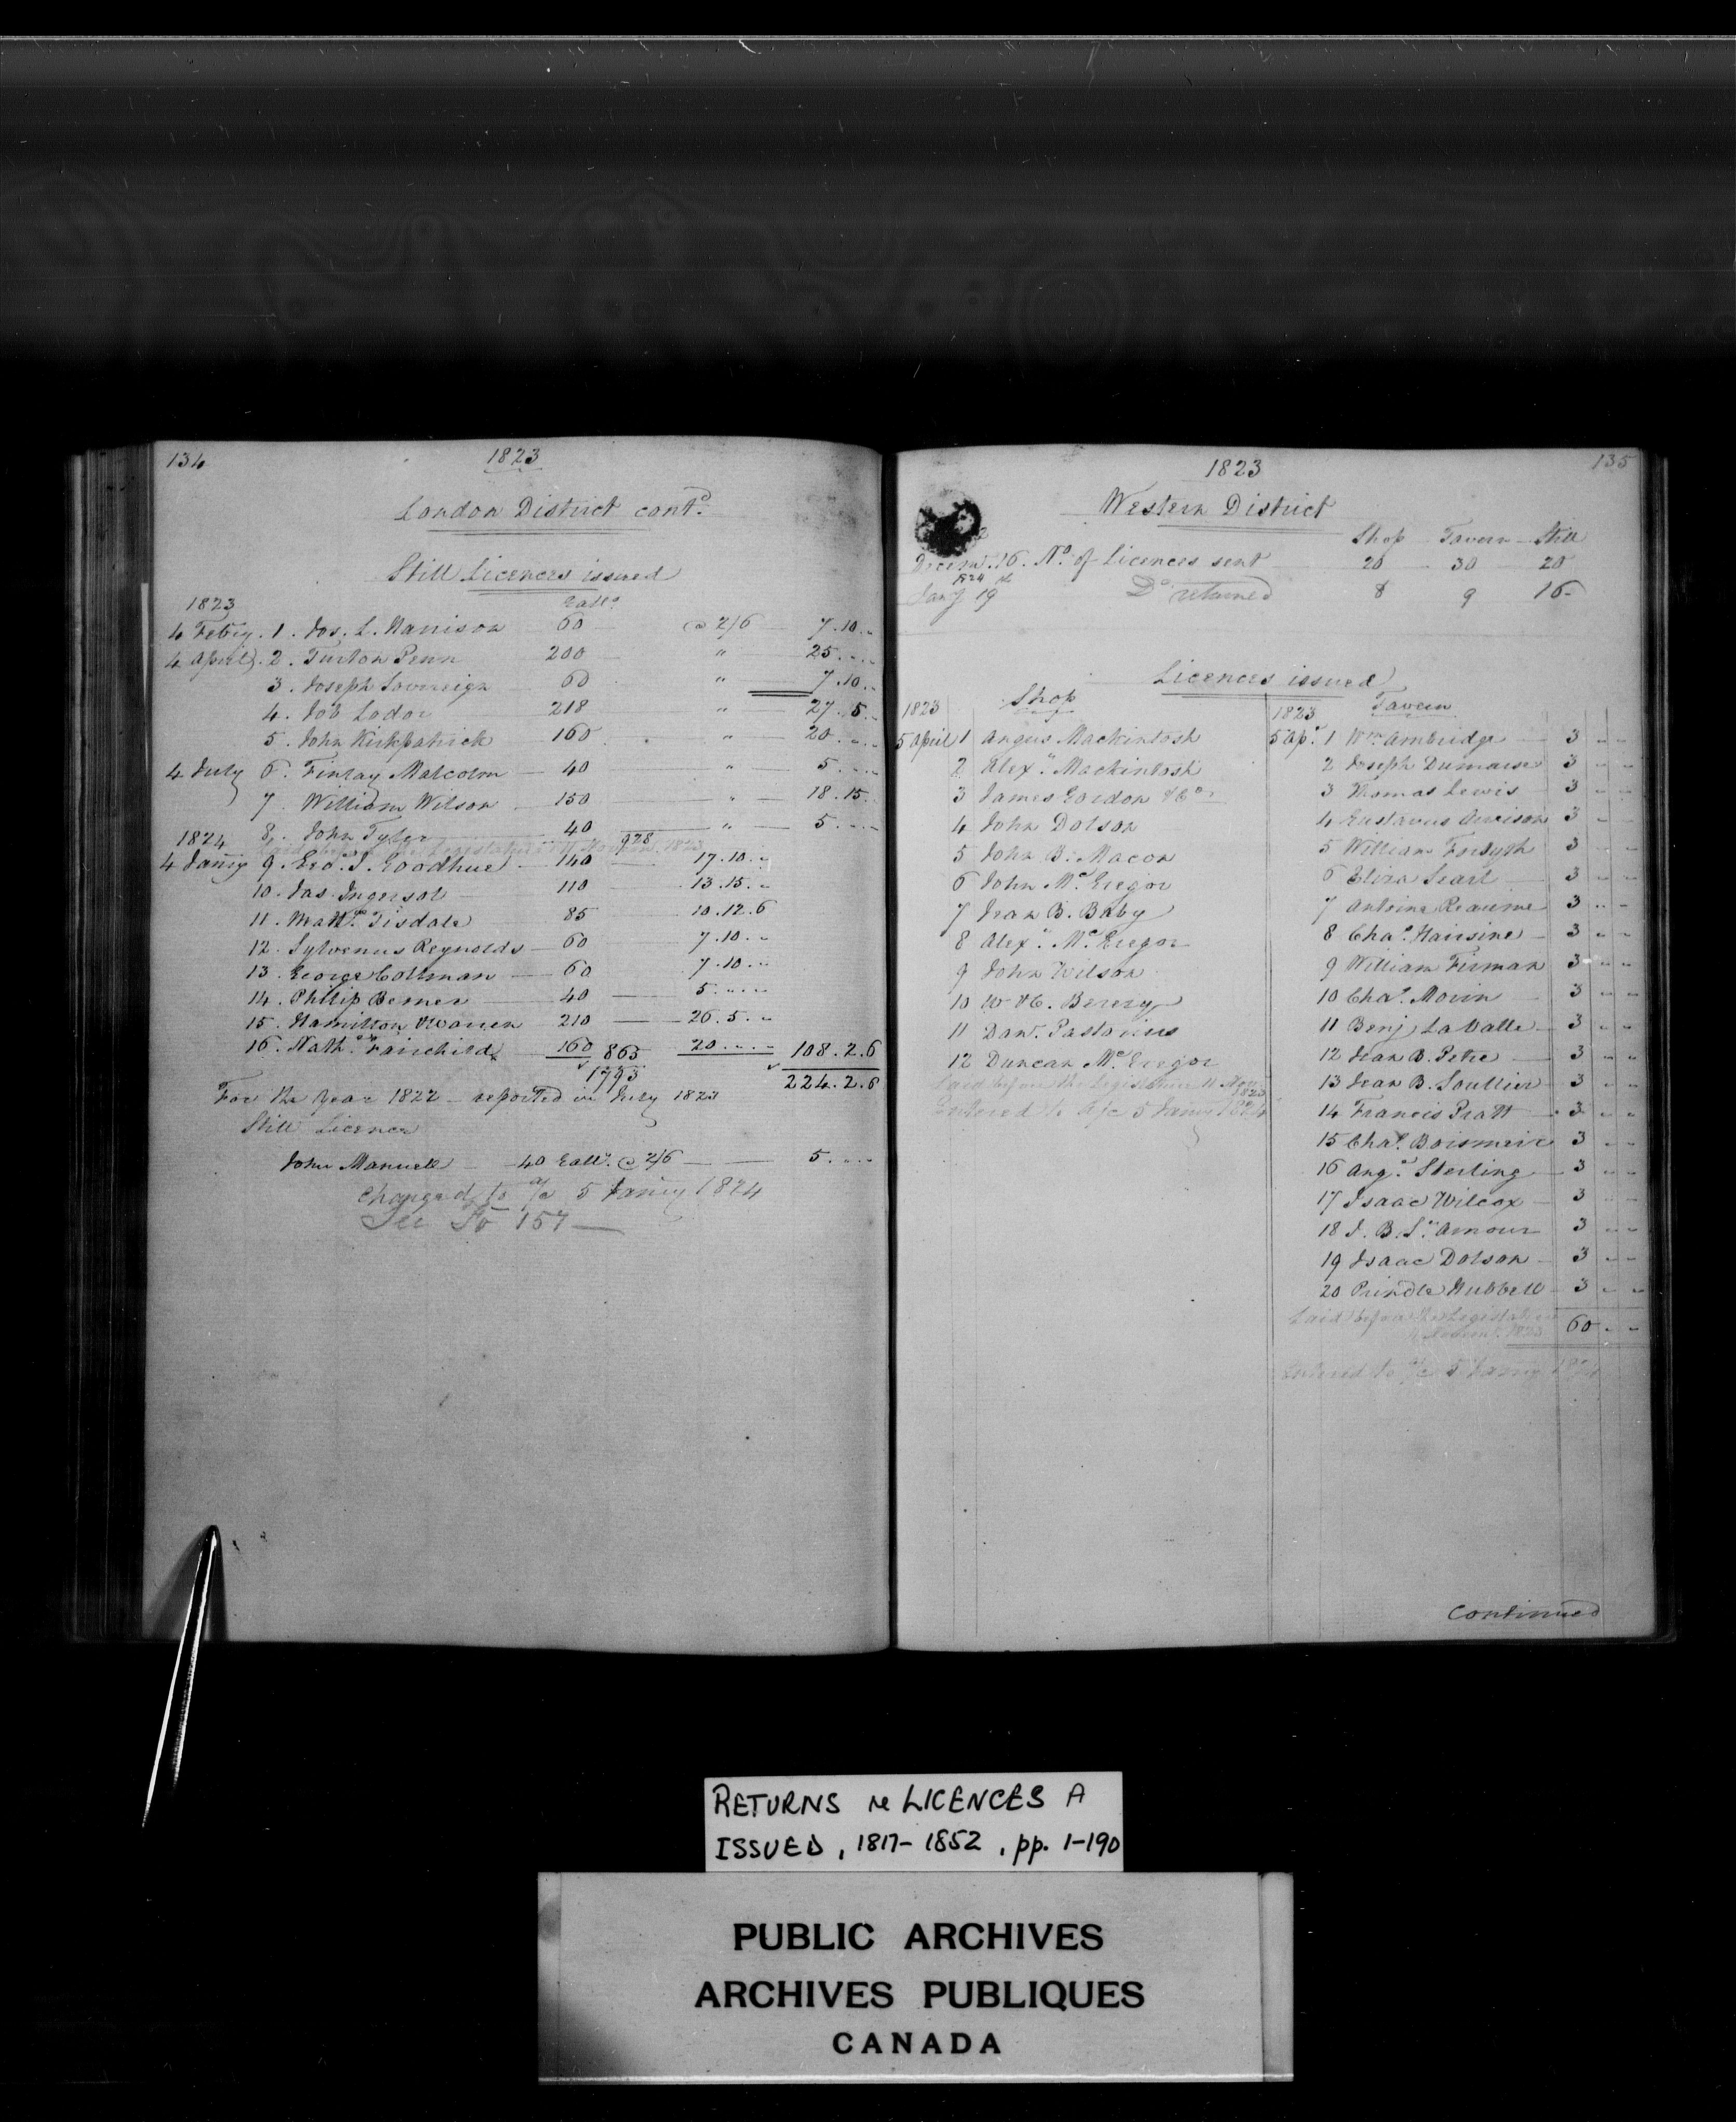 134
1823
London District cont.d
Still Licences issued
1823 Gall.s
4 Feb'y. 1. Jos. L. Harrison 60 @ 2/6 7.10.„
4 April. 2. Turton Penn 200 „ 25.„.„
3. Joseph Sovereign 60 „ 7.10.„
4. Job Lodor 218 „ 27.5.„
5. John Kirkpatrick 160 „ 20.„.„
4 July 6. Finlay Malcolm 40 „ 5.„.„
7. William Wilson 150 „ 18.15.„
8. John Tyler 40 928 „ 5.„.„
1824
4 Jan'y 9. Geo. J. Goodhue 140 17.10.„
10. Jas. Ingersol 110 13.15.„
11. Matt.w Tisdale 85 10.12.6
12. Sylvenus Reynolds 60 7.10.„
13. George Coltman 60 7.10.„
14. Philip Bemer 40 5.„.„
15. Hamilton Warren 210 26.5.„
16. Nath. Fairchild 160 865 20.„.„ 108.2.6
1793 224.2.6
For the year 1822 - reported in July 1823
Still Licence
John Manuell 40 Gall.s @ 2/6 5.„.„
Charged to a/c 5 Jan'y 1824
See fo 157
135
1823
Western District
Shop Tavern Still
Decem. 16. No. of Licences sent 20 30 20
1824
Jan'y 19 Do returned 8 9 16
Licences issued
1823 Shop
5 April 1 Angus Mackintosh
2 Alex.r Mackintosh
3 James Gordon & Co.
4 John Dolson
5 John B. Macon
6 John McGregor
7 Jean B. Baby
8 Alex.r McGregor
9 John Wilson
10 W & C. Berczy
11 Dan.l Pastorius
12 Duncan McGregor
Laid before the Legislature 11 Nov. 1823
Entered to a/c 5 Jan'y 1824
1823 Tavern
5 Ap.l 1 Wm. Ambridge 3 „ „
2 Joseph Dumaise 3 „ „
3 Thomas Lewis 3 „ „
4 Gustavus 3 „ „
5 William Forsyth 3 „ „
6 Eliza Searl 3 „ „
7 Antoine Reaume 3 „ „
8 Cha.s Hairsine 3 „ „
9 William Firman 3 „ „
10 Cha.s Morin 3 „ „
11 Benj. LaValle 3 „ „
12 Jean B. Petre 3 „ „
13 Jean B. Soullier 3 „ „
14 Francis Pratt 3 „ „
15 Cha.s 3 „ „
16 Ang.s Sterling 3 „ „
17 Isaac Wilcox 3 „ „
18 J. B. St. Amour 3 „ „
19 Isaac Dolson 3 „ „
20 Prindle Hubbell 3 „ „
Laid before the Legislature 1823 60 „ „
Entered to a/c 5 Jan'y 1824
Continued
RETURNS re LICENCES A
ISSUED, 1817-1852, pp. 1-190
PUBLIC ARCHIVES
ARCHIVES PUBLIQUES
CANADA